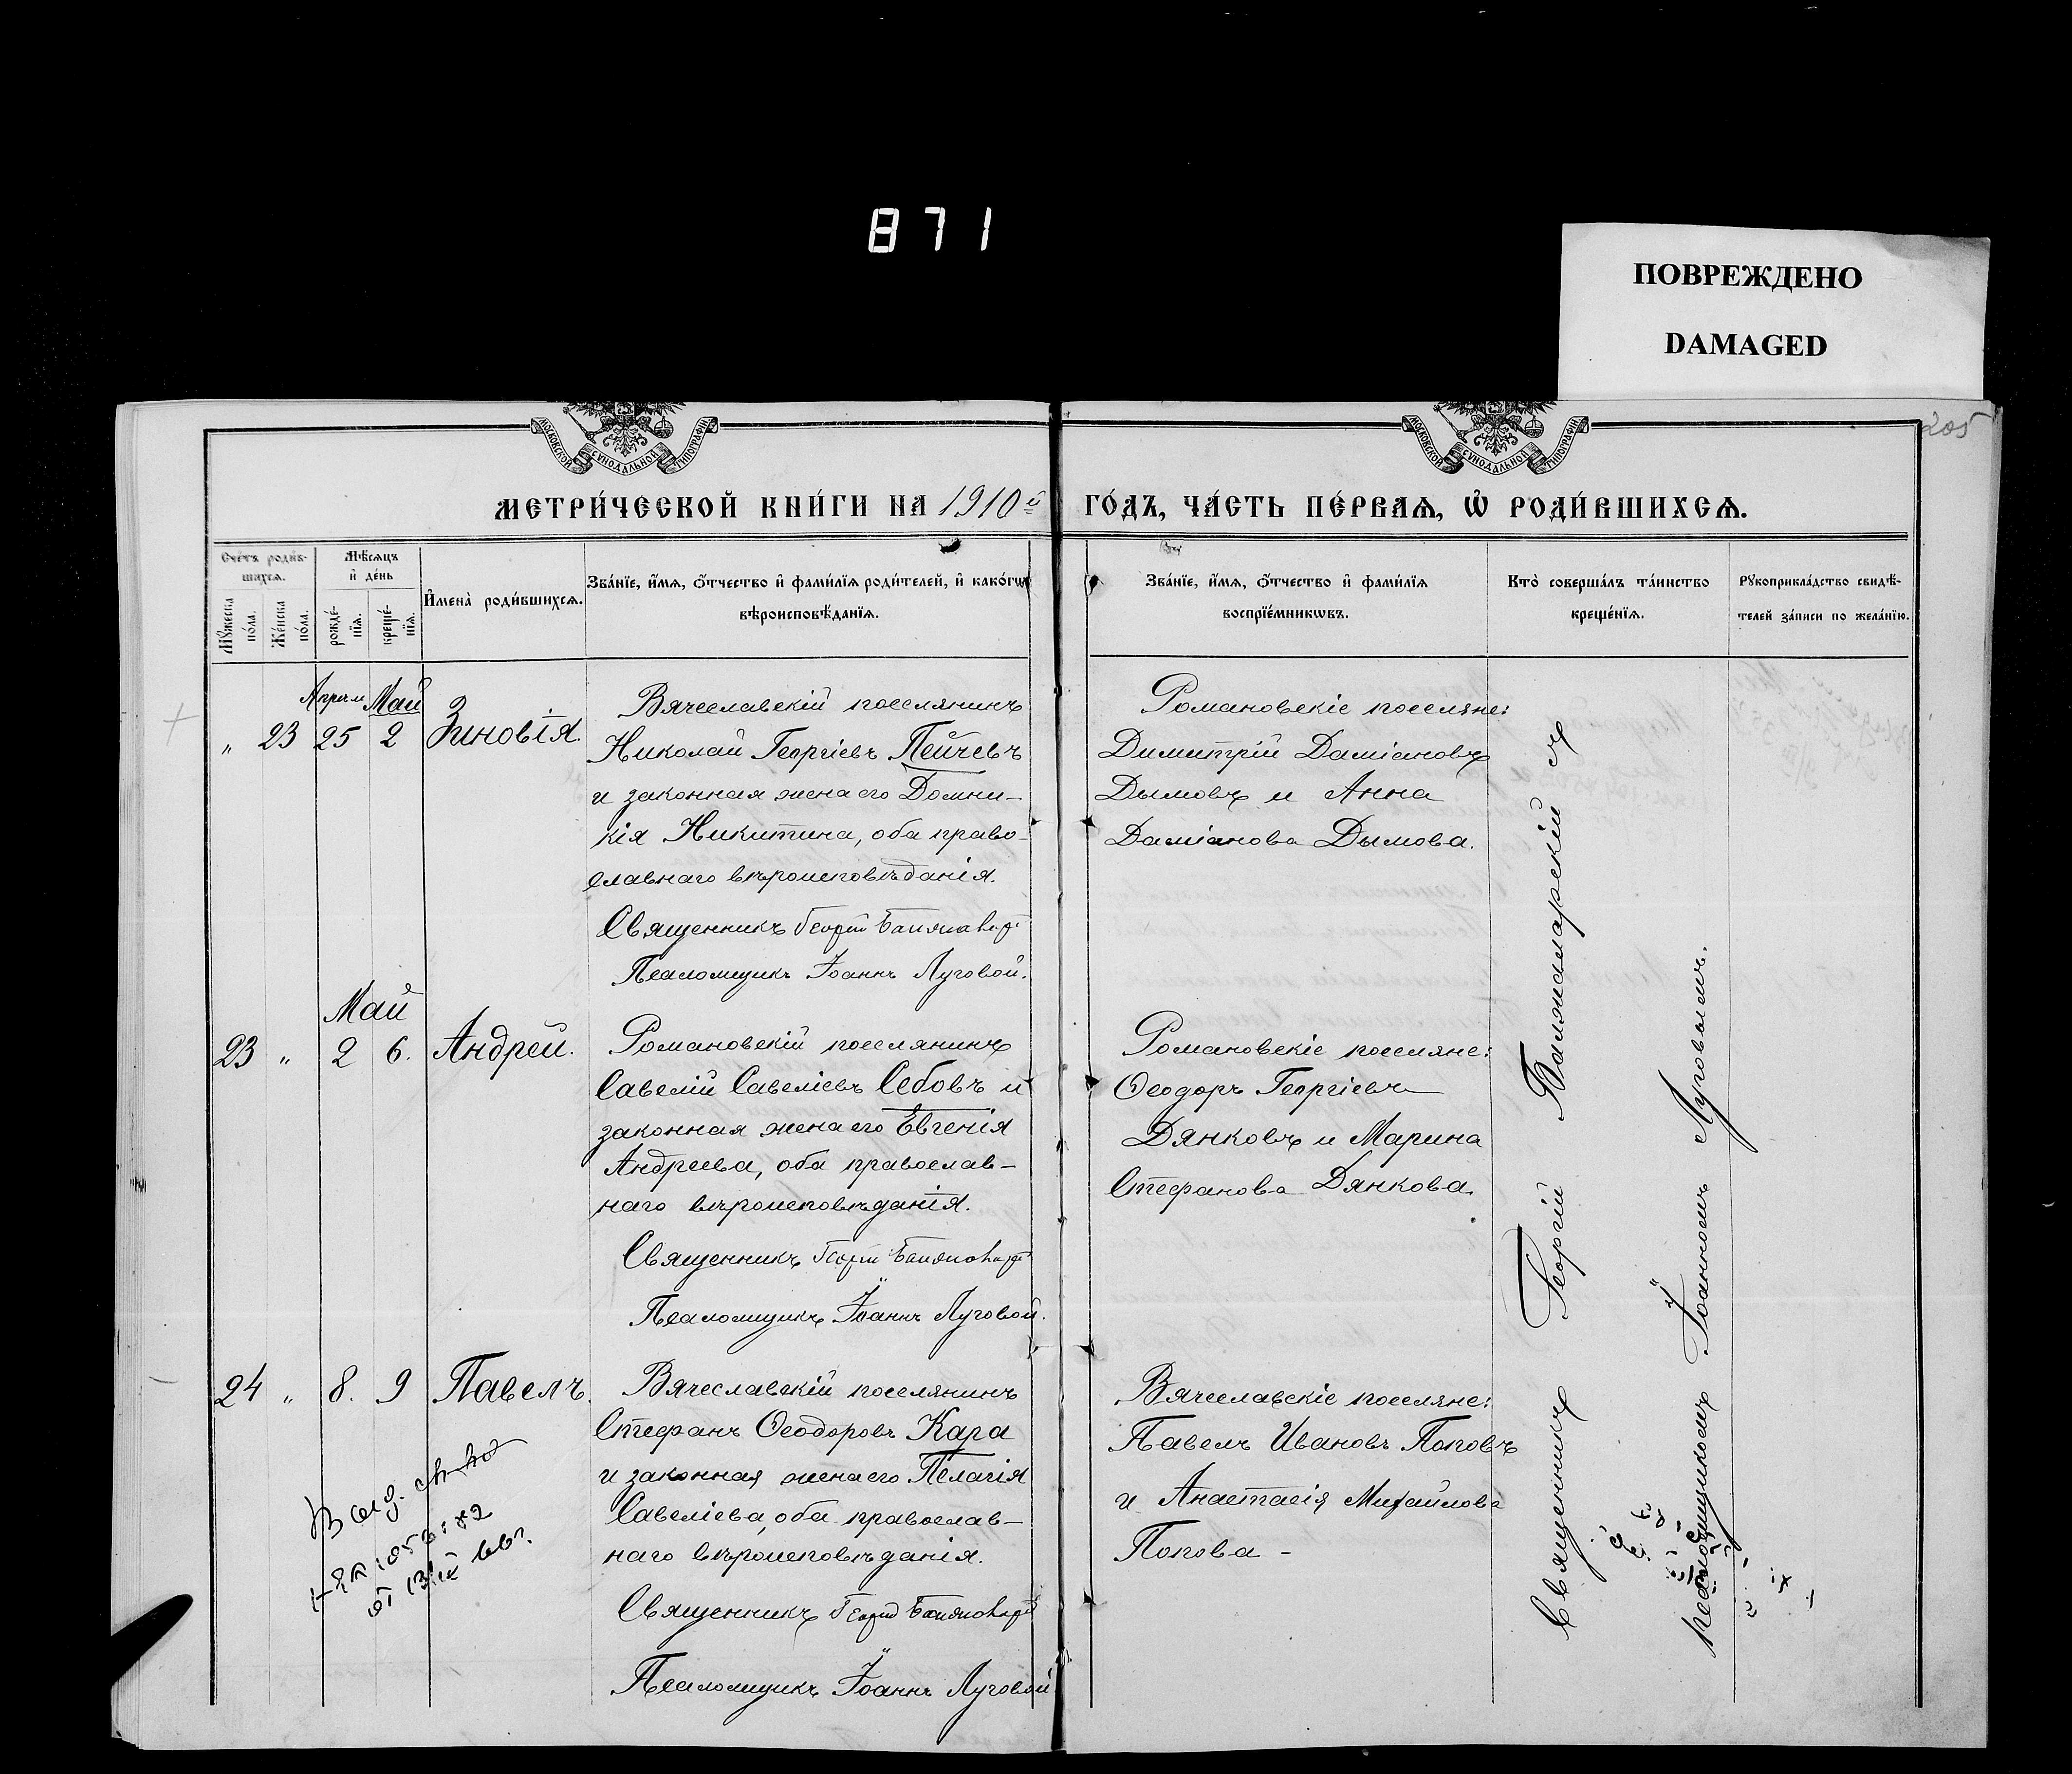 871
ПОВРЕЖДЕНО
DAMAGED
205
МОСКОВСКОЙ СѴНОДАЛЬНОЙ ТИПОГРАФІИ
МОСКОВСКОЙ СѴНОДАЛЬНОЙ ТИПОГРАФІИ
МЕТРИ́ЧЕСКОЙ КНИ́ГИ НА 1910й ГО́ДЪ, ЧА́СТЬ ПЕ́РВАѦ, Ѡ҆ РОДИ́ВШИХСѦ.
Сче́тъ роди́вшихсѧ.
Мѹ́жеска по́ла.
Же́нска по́ла.
Мѣ́сѧцъ и҆ де́нь
рожде́нїѧ.
креще́нїѧ.
И҆мена̀ роди́вшихсѧ.
Зва́нїе, и҆́мѧ, ѻ҆́тчество и҆ фами́лїѧ роди́телей, и҆ како́гѡ
вѣроисповѣ́данїѧ.
Зва́нїе, и҆́мѧ, ѻ҆́тчество и҆ фами́лїѧ
воспрїе́мникѡвъ.
Кто̀ соверша́лъ та́инство
креще́нїѧ.
Рѹкоприкла́дство свидѣ́-
телей за́писи по жела́нїю.
Апрѣль Май
" 23 25 2 Зиновія.
Вячеславскій поселянинъ
Николай Георгіевъ Пейчевъ
и законная жена его Домни-
кія Никитина, оба право-
славнаго вѣроисповѣданія.
Священникъ Георгій
Псаломщикъ Іоаннъ Луговой.
Романовскіе поселяне:
Димитрій Даміановъ
Дымовъ и Анна
Даміанова Дымова.
Май
23 " 2 6. Андрей.
Романовскій поселянинъ
Савелій Савеліевъ Себовъ и
законная жена его Евгенія
Андреева, оба православ-
наго вѣроисповѣданія.
Священникъ Георгій
Псаломщикъ Іоаннъ Луговой.
Романовскіе поселяне:
Ѳеодоръ Георгіевъ
Дянковъ и Марина
Стефанова Дянкова.
24 " 8. 9 Павелъ.
Вячеславскій поселянинъ
Стефанъ Ѳеодоровъ Кара
и законная жена его Пелагія
Савеліева, оба православ-
наго вѣроисповѣданія.
Священникъ Георгій
Псаломщикъ Іоаннъ Луговой
Вячеславскіе поселяне:
Павелъ Ивановъ Поповъ
и Анастасія Михайлова
Попова -
Священникъ Георгій
псаломщикомъ Іоанномъ Луговымъ.